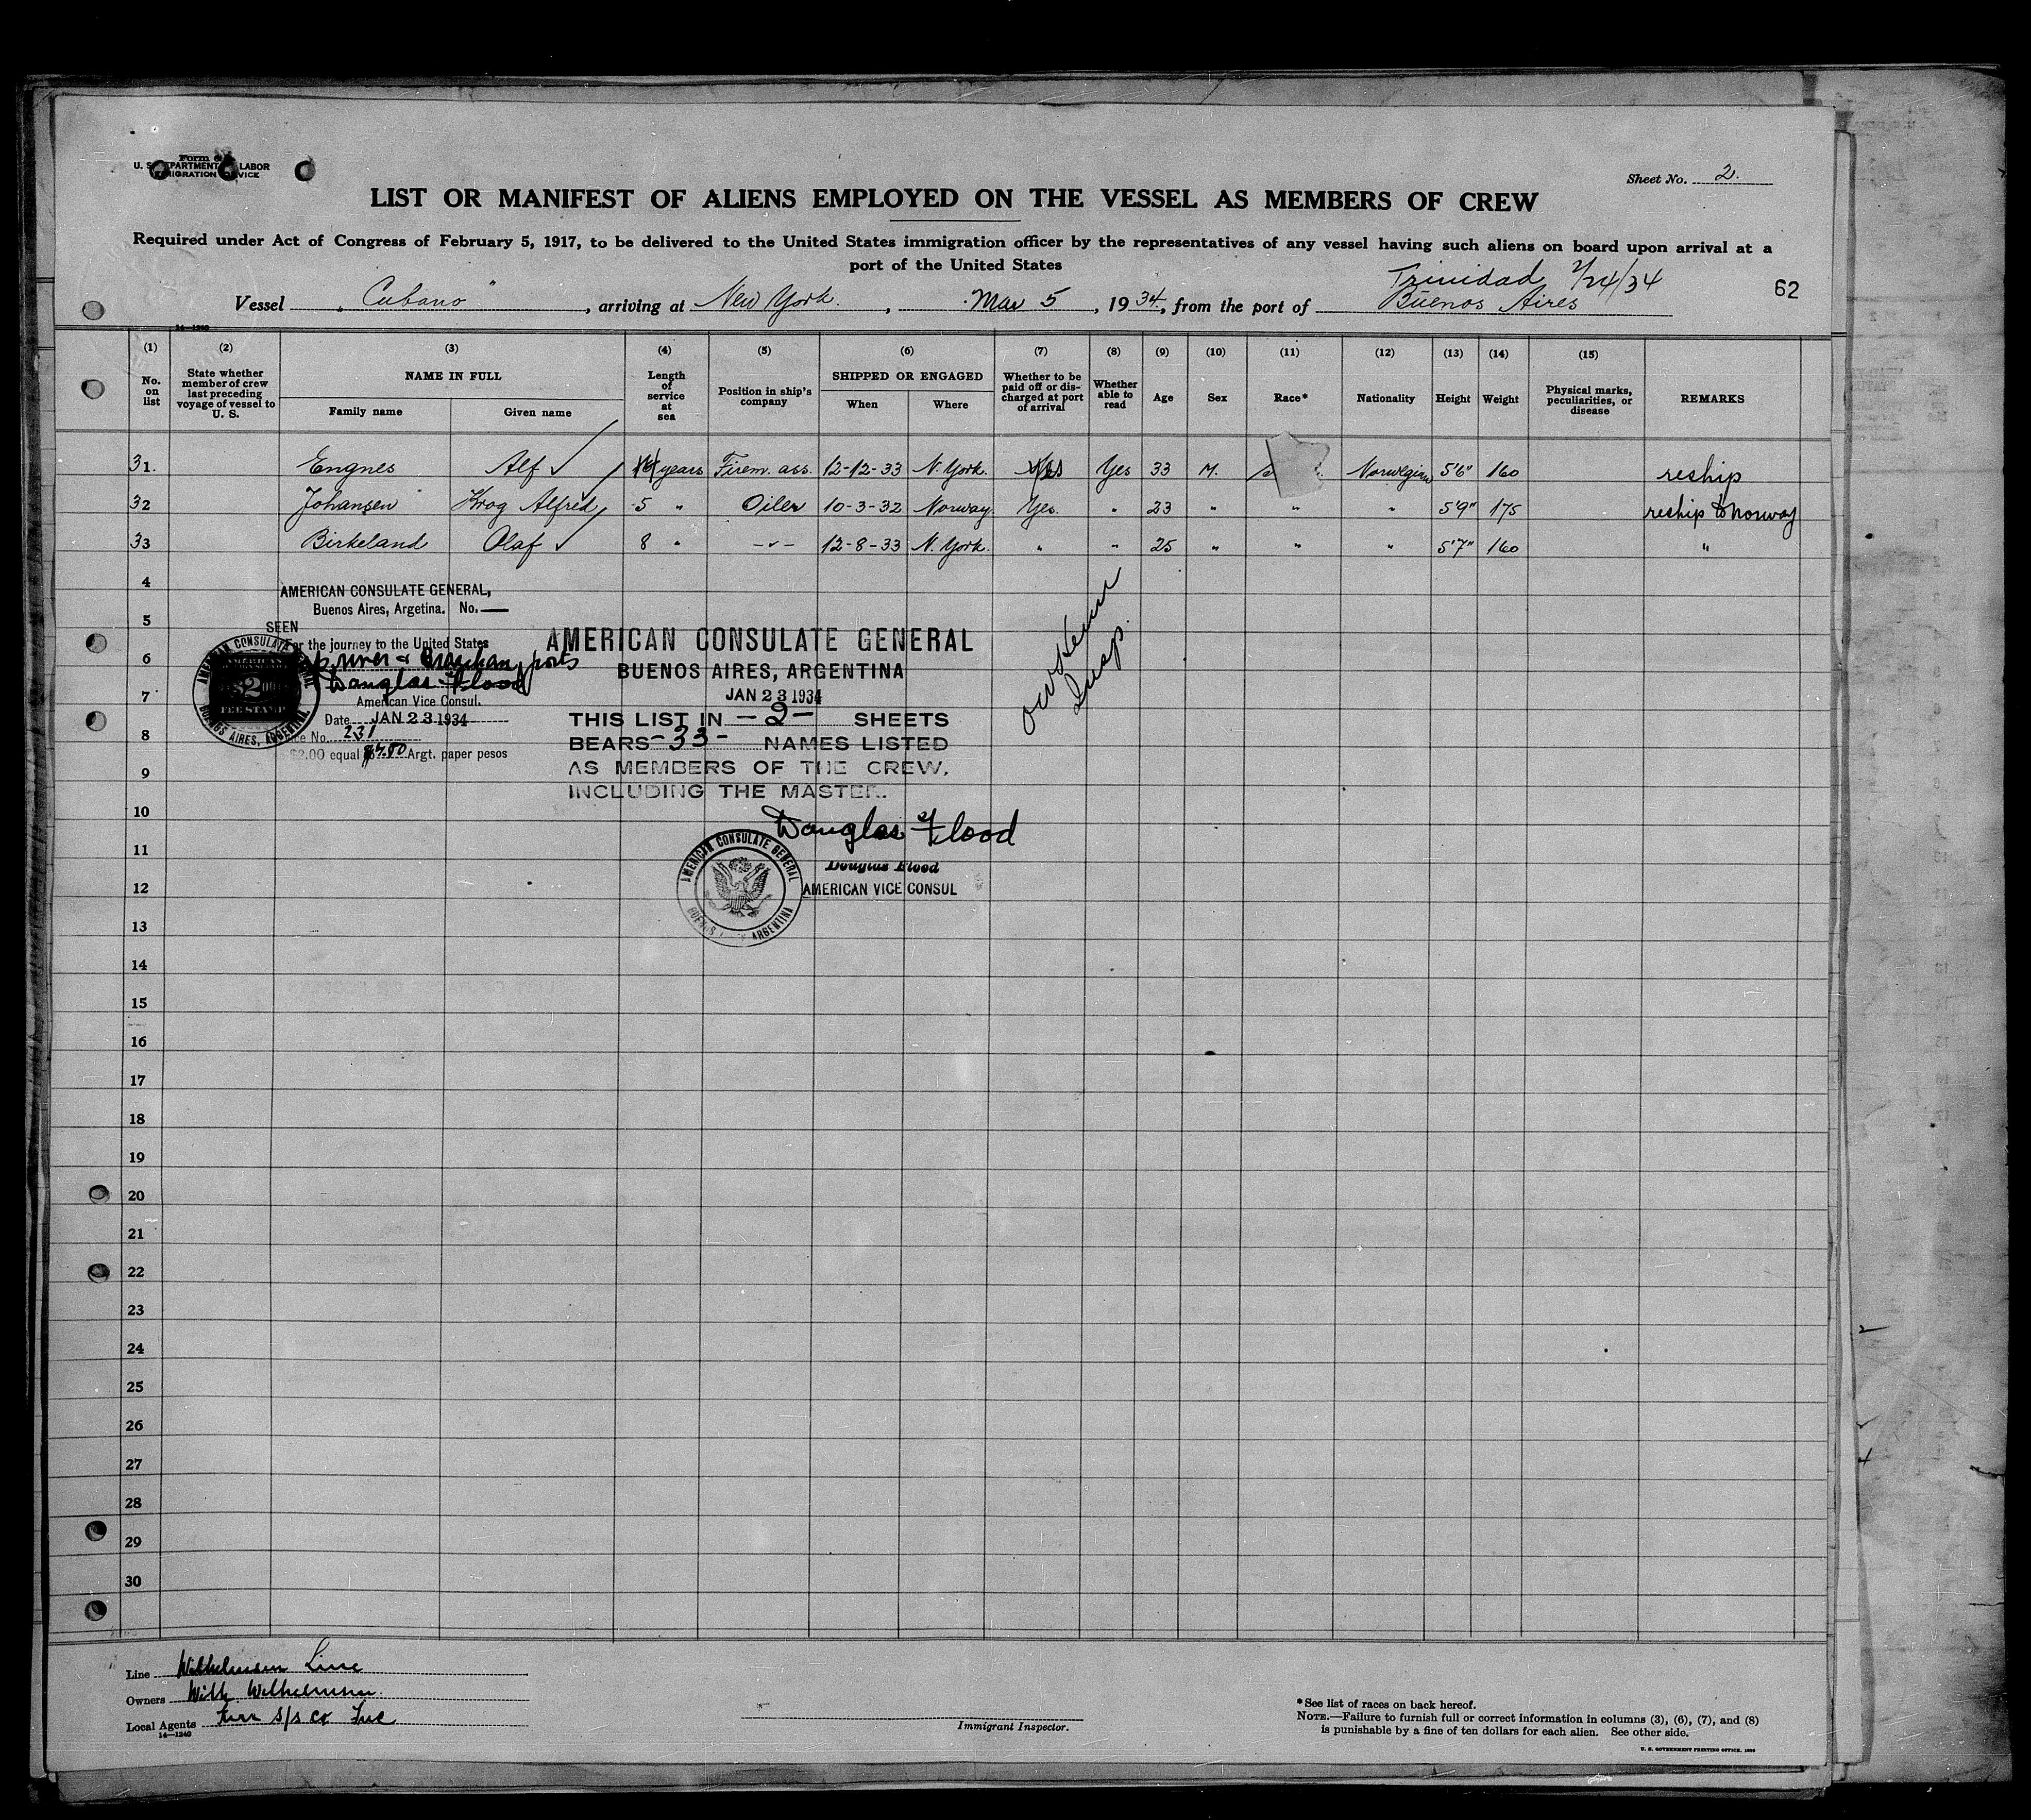 Form
U. S. DEPARTMENT LABOR
IMMIGRATION SERVICE
Sheet No. 2.
LIST OR MANIFEST OF ALIENS EMPLOYED ON THE VESSEL AS MEMBERS OF CREW
Required under Act of Congress of February 5, 1917, to be delivered to the United States immigration officer by the representatives of any vessel having such aliens on board upon arrival at a
port of the United States
Trinidad 2/24/34
Vessel "Cubano", arriving at New York, Mar 5, 1934, from the port of Buenos Aires
62
14—1240
(1) (2) (3) (4) (5) (6) (7) (8) (9) (10) (11) (12) (13) (14) (15)
No. on list
State whether member of crew last preceding voyage of vessel to U. S.
NAME IN FULL
Family name Given name
Length of service at sea
Position in ship's company
SHIPPED OR ENGAGED
When Where
Whether to be paid off or discharged at port of arrival
Whether able to read
Age
Sex
Race*
Nationality
Height
Weight
Physical marks, peculiarities, or disease
REMARKS
31. Engnes Alf years Firem. ass. 12-12-33 N. York. Yes Yes 33 M. Norwegian 5'6" 160 reship
32 Johansen Krog Alfred 5 " Oiler 10-3-32 Norway Yes. " 23 " " " 5'9" 175 reship to Norway
33 Birkeland Olaf 8 " -"- 12-8-33 N. York. " " 25 " " " 5'7" 160 "
4
5
6
7
8
9
10
11
12
13
14
15
16
17
18
19
20
21
22
23
24
25
26
27
28
29
30
AMERICAN CONSULATE GENERAL,
Buenos Aires, Argetina. No. —
SEEN
For the journey to the United States
river & Brazilian ports
Douglas Flood
American Vice Consul.
Date JAN 23 1934
No. 231
$2.00 equal Argt. paper pesos
AMERICAN CONSULATE GENERAL
BUENOS AIRES, ARGENTINA
AMERICAN CONSULATE GENERAL
BUENOS AIRES, ARGENTINA
JAN 23 1934
THIS LIST IN -2- SHEETS
BEARS -33- NAMES LISTED
AS MEMBERS OF THE CREW,
INCLUDING THE MASTER.
Douglas Flood
Douglas Flood
AMERICAN VICE CONSUL
AMERICAN CONSULATE GENERAL
BUENOS AIRES ARGENTINA
Insp.
Line Wilhelmsen Line
Owners Wilh. Wilhelmsen
Local Agents Kerr S/S Co Inc
14—1240
Immigrant Inspector.
*See list of races on back hereof.
NOTE.—Failure to furnish full or correct information in columns (3), (6), (7), and (8)
is punishable by a fine of ten dollars for each alien. See other side.
U. S. GOVERNMENT PRINTING OFFICE